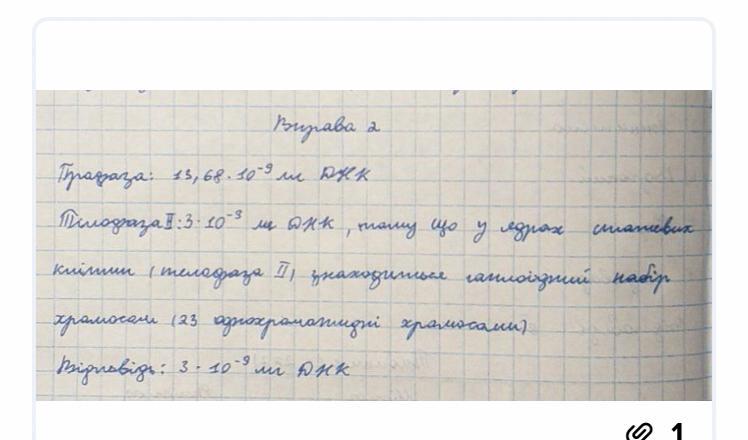 Вправа 2
Профаза: 13,68·10⁻⁹ мг ДНК
Тілофаза II: 3·10⁻⁹ мг ДНК, тому що у ядрах статевих
клітин (телофаза II) знаходиться гаплоїдний набір
хромосом (23 однохроматидні хромосоми)
Відповідь: 3·10⁻⁹ мг ДНК
1